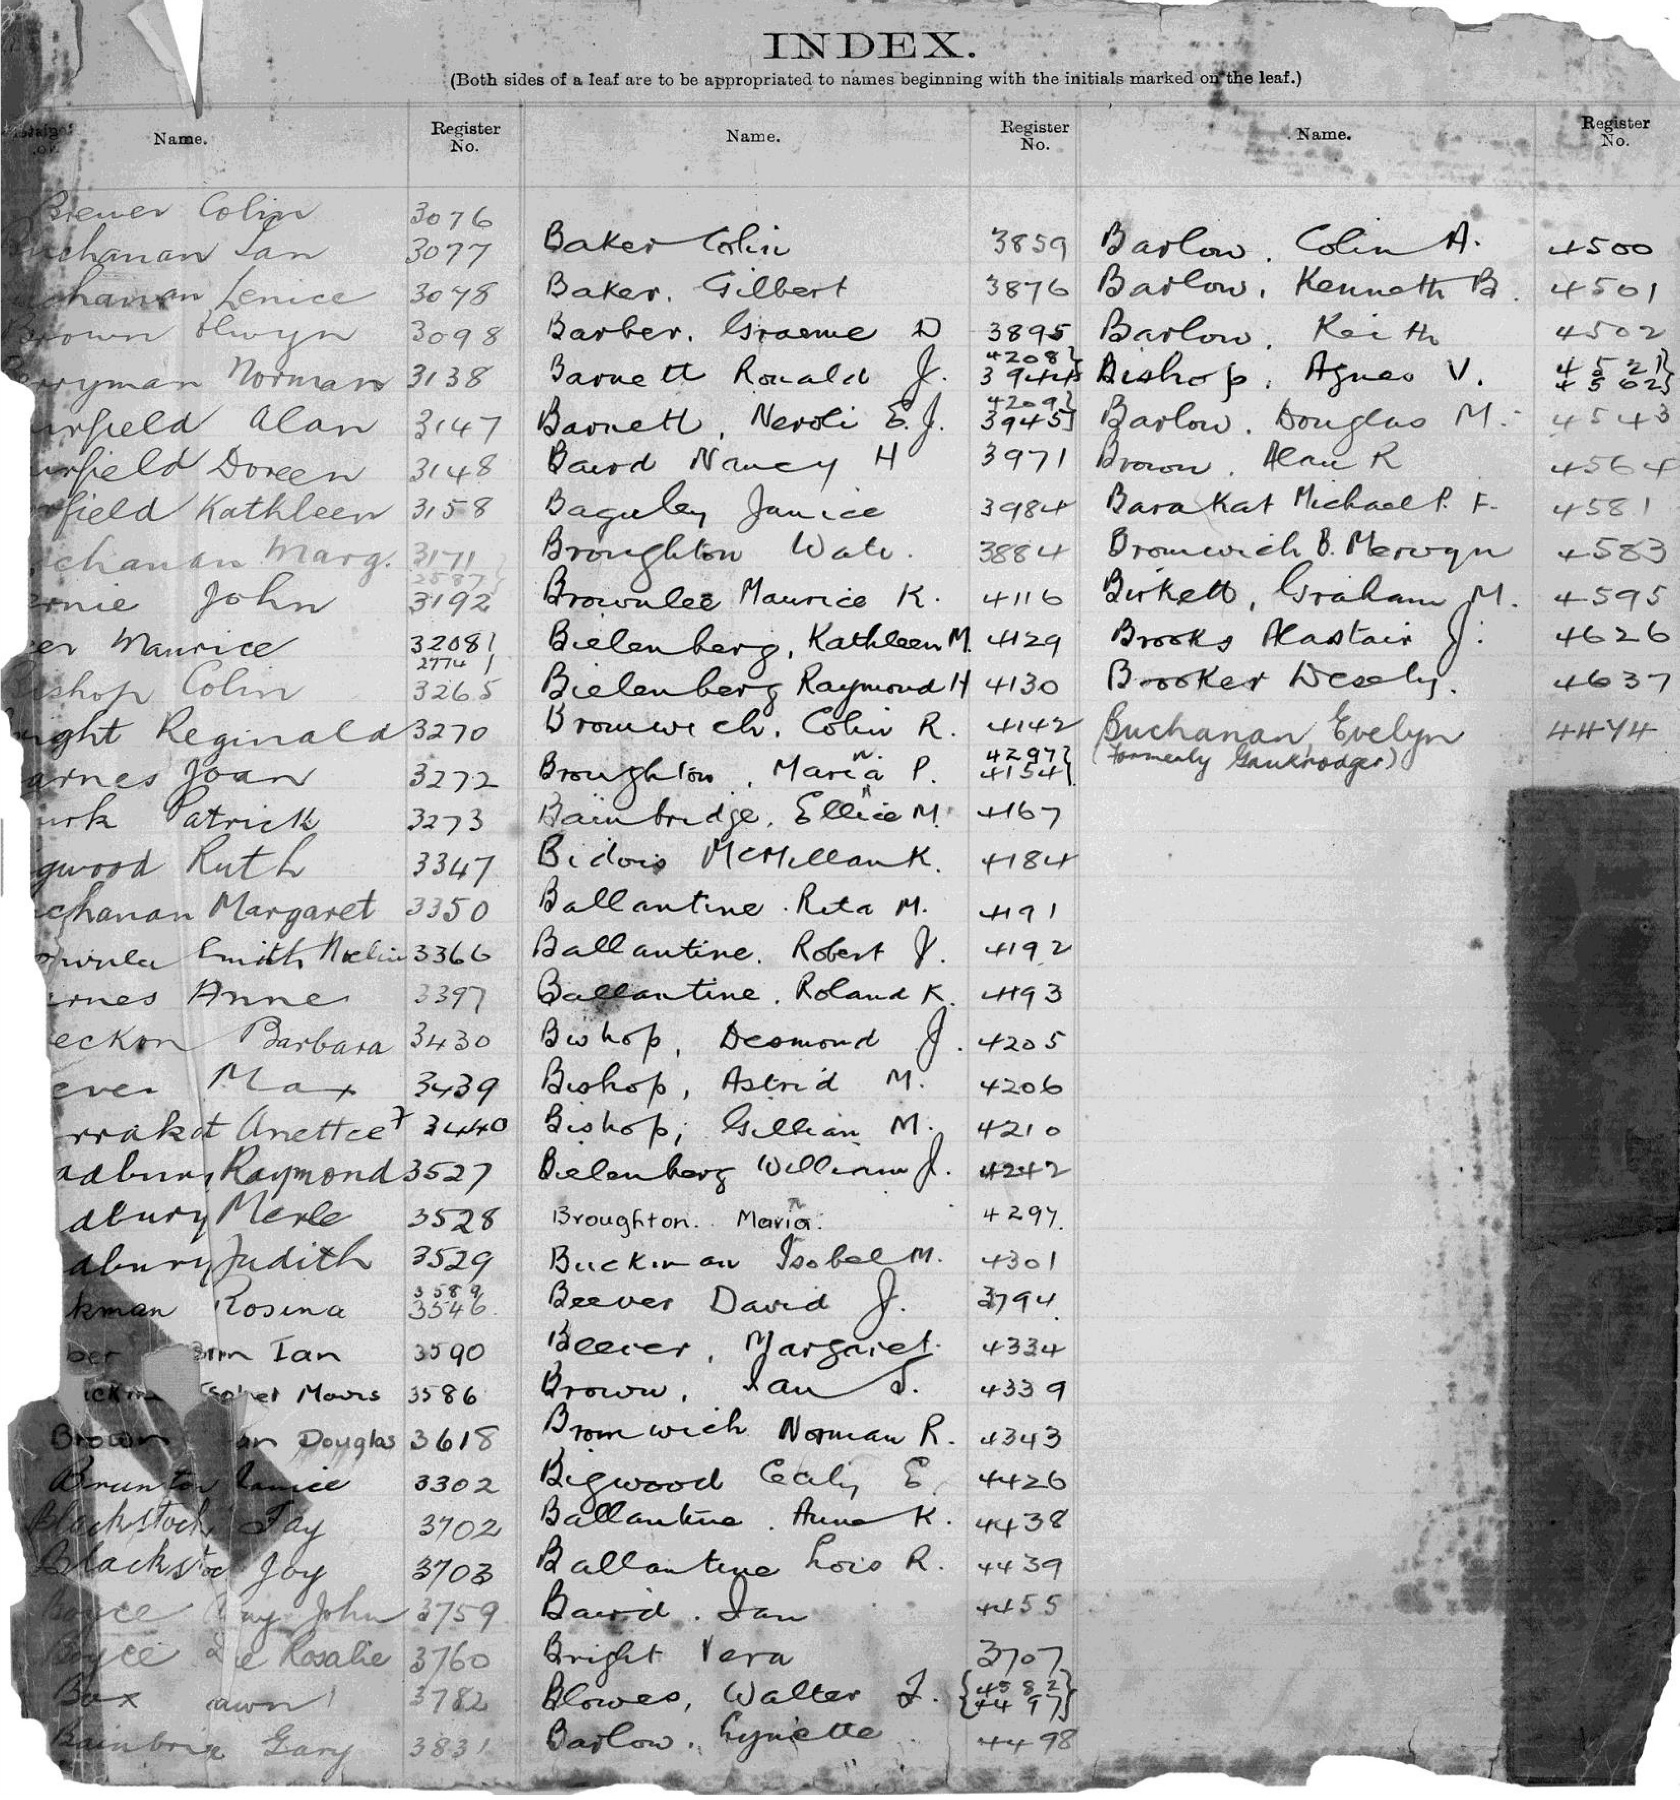 INDEX.
(Both sides of a leaf are to be appropriated to names beginning with the initials marked on the leaf.)
Name. Register No.
Brewer Colin 3076
Buchanan Ian 3077
chanan Lenice 3078
Brown Olwyn 3098
erryman Norman 3138
urfield Alan 3147
urfield Doreen 3148
rfield Kathleen 3158
chanan Marg. 3171 } 2587 }
ernie John 3192
er Maurice 3208 } 2774 }
Bishop Colin 3265
right Reginald 3270
arnes Joan 3272
urk Patrick 3273
gwood Ruth 3347
chanan Margaret 3350
Smith 3366
rnes Anne 3397
eckon Barbara 3430
ever Max 3439
rrakat Anettce 3440
adbury Raymond 3527
dbury Merle 3528
dbury Judith 3529
kman Rosina 3589 3546
ber Ian 3590
Mavis 3586
Brown an Douglas 3618
Brunton Janice 3302
Blackstock Fay 3702
Blackstoc Joy 3703
Boyce ay John 3759
Boyce e Rosalie 3760
Box awn 3782
Bainbrig Gary 3831
Name. Register No.
Baker Colin 3859
Baker. Gilbert 3876
Barber. Graeme D 3895
Barnett Ronald J. 4208 } 3944 }
Barnett, Neroli E. J. 4209 } 3945 }
Baird Nancy H 3971
Baguley Janice 3984
Broughton Wati. 3884
Brownlee Maurice K. 4116
Bielenberg, Kathleen M. 4129
Bielenberg Raymond H 4130
Bromwich, Colin R. 4142
Broughton, Maria P. 4297 } 4154 }
Bainbridge. Ellice M. 4167
Bidois McMillan K. 4184
Ballantine. Rita M. 4191
Ballantine. Robert J. 4192
Ballantine. Roland K. 4193
Bishop, Desmond J. 4205
Bishop, Astrid M. 4206
Bishop, Gillian M. 4210
Bielenberg William J. 4242
Broughton. Maria. 4297.
Buckman Isobel M. 4301
Beever David J. 3794
Beever, Margaret. 4334
Brown, Ian S. 4339
Bromwich Norman R. 4343
Bigwood Cecily E. 4426
Ballantine. Anne K. 4438
Ballantine Lois R. 4439
Baird. Ian 4455
Bright Vera 3707
Blowes, Walter J. { 4582 } { 4497 }
Barlow. Lynette 4498
Name. Register No.
Barlow. Colin A. 4500
Barlow. Kenneth B. 4501
Barlow. Keith 4502
Bishop. Agnes V. 4521 } 4562 }
Barlow. Douglas M. 4543
Brown. Alan R 4564
Barakat Michael P. F. 4581
Bromwich B. Mervyn 4583
Birkett, Graham M. 4595
Brooks Alastair J. 4626
Brooker Wesely. 4637
Buchanan Evelyn 4474
(formerly Gaukrodger)